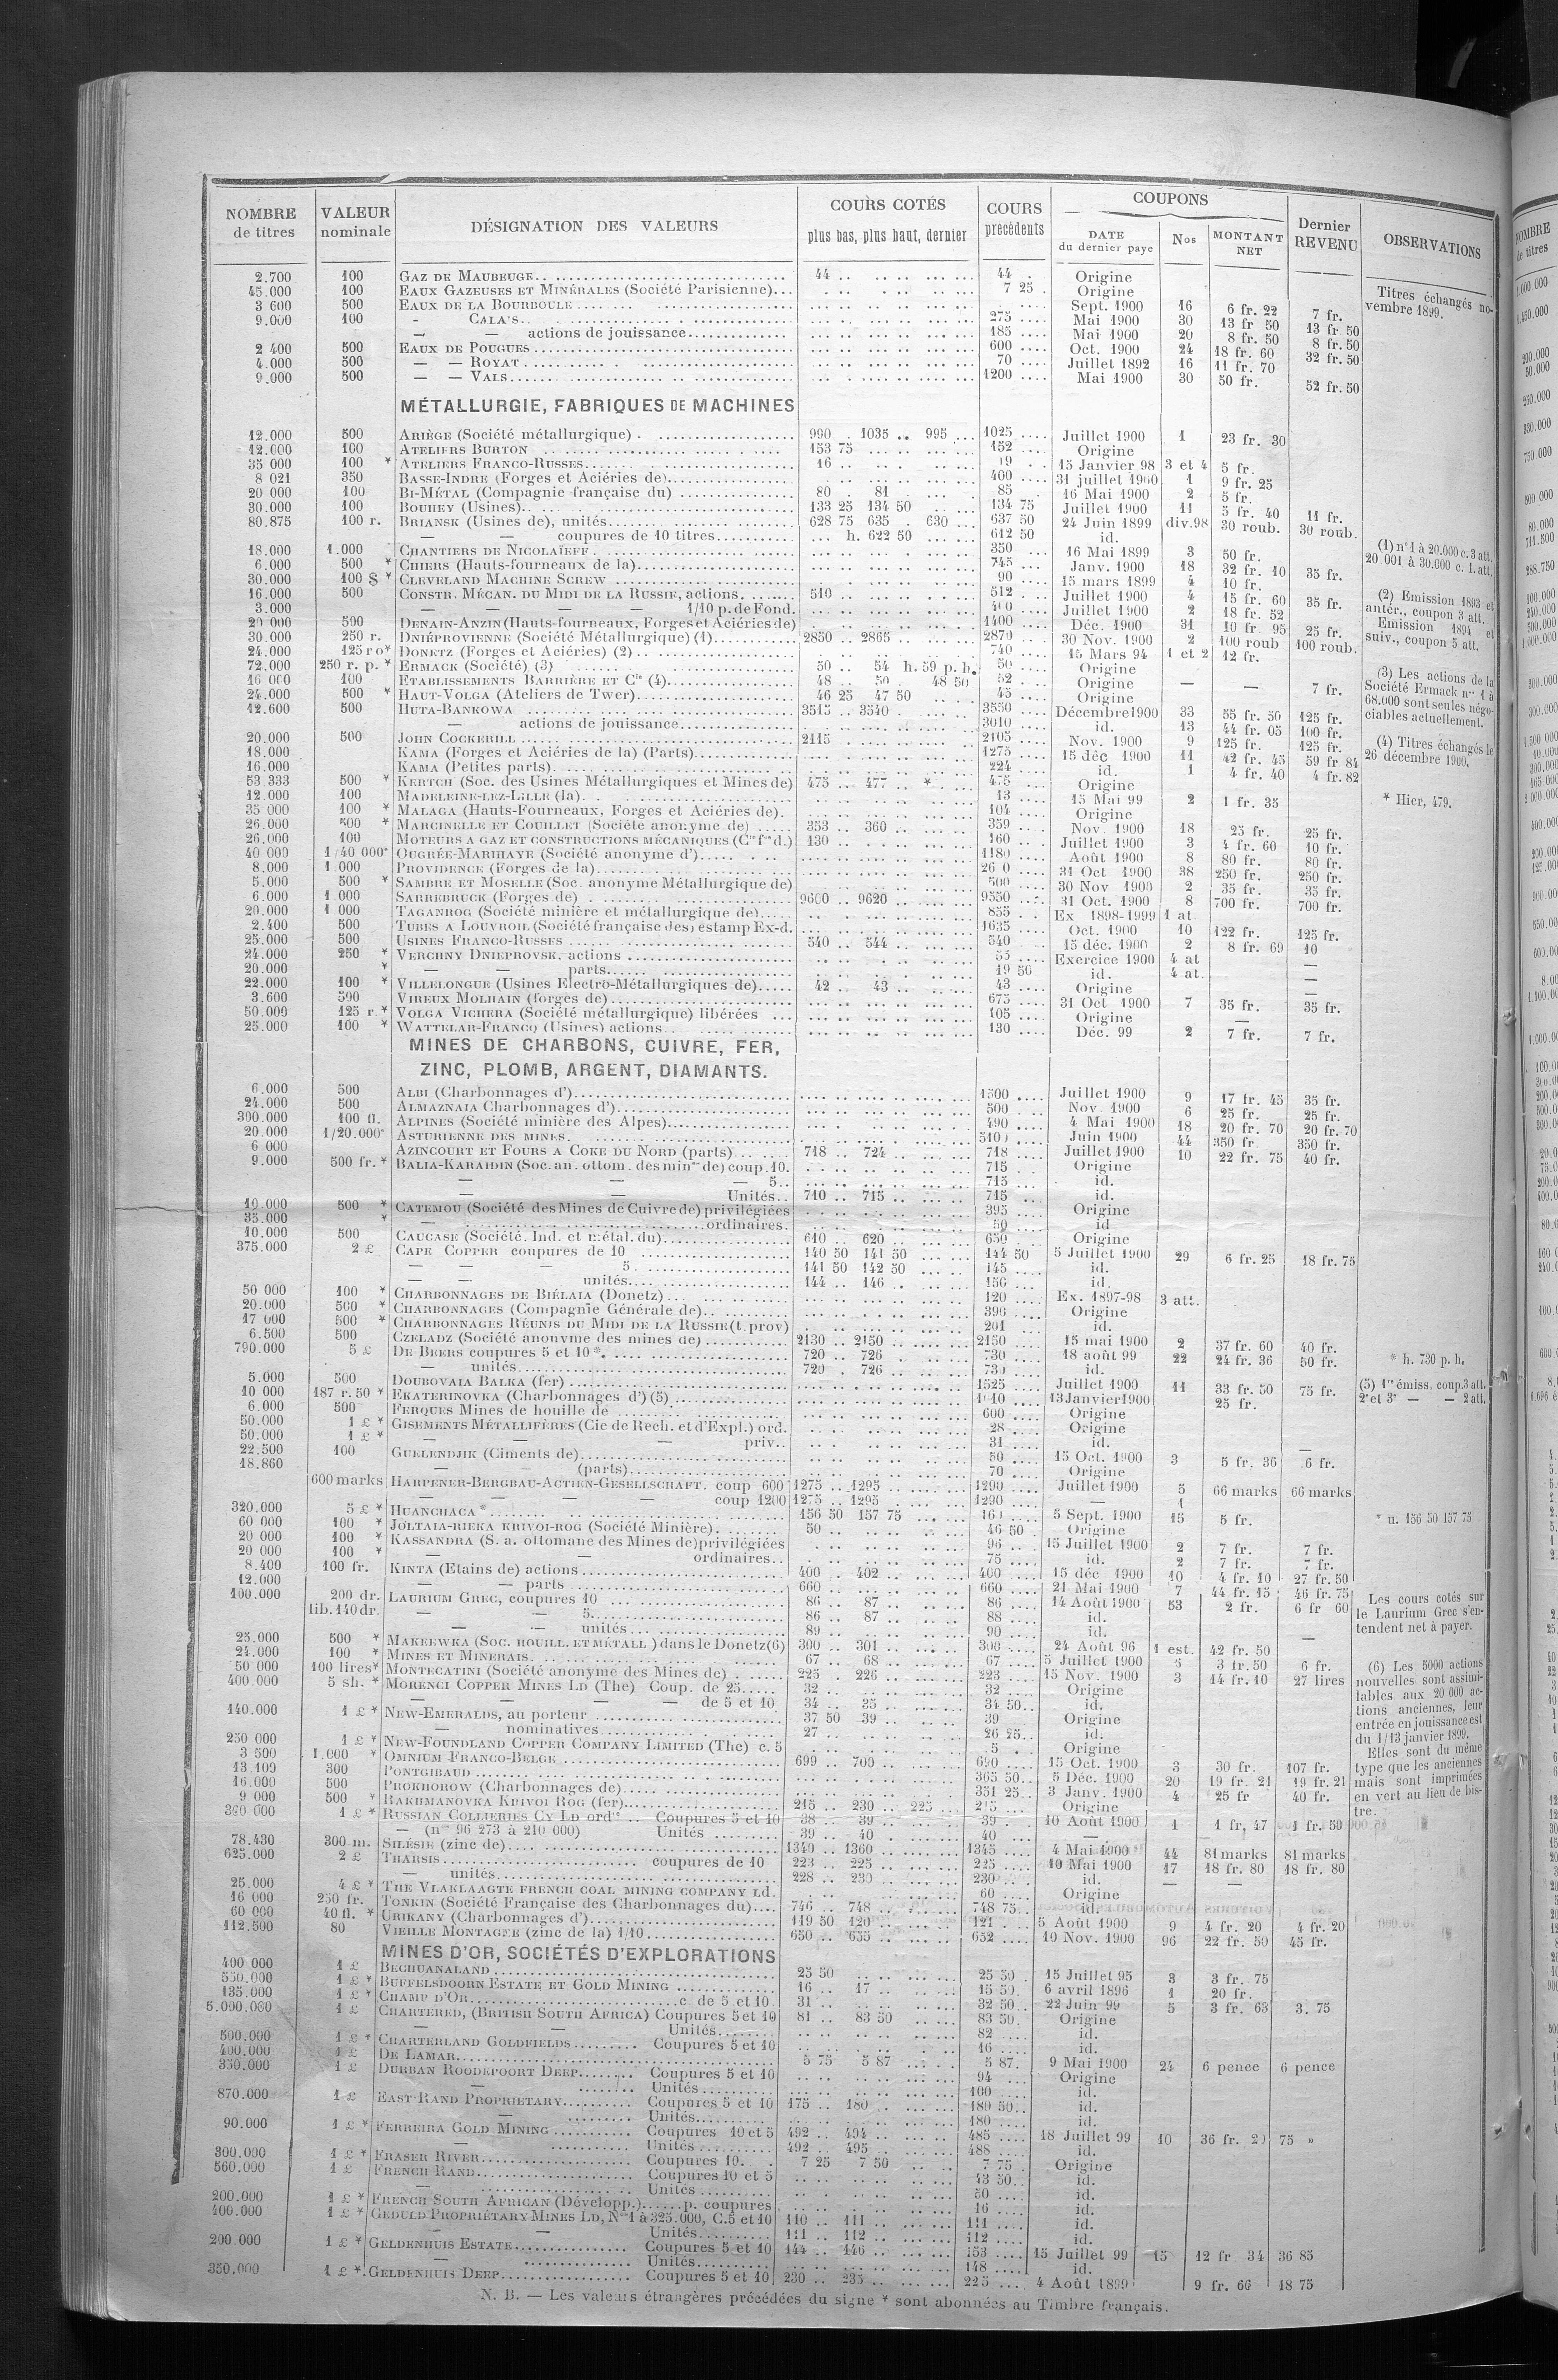 NOMBRE de titres | VALEUR nominale | DÉSIGNATION DES VALEURS | COURS COTÉS plus bas, plus haut, dernier | COURS précédents | COUPONS DATE du dernier paye | Nos | MONTANT NET | Dernier REVENU | OBSERVATIONS
2.700 100 GAZ DE MAUBEUGE 44 .. 44 . Origine
45.000 100 EAUX GAZEUSES ET MINÉRALES (Société Parisienne) 7 25 Origine
3 600 500 EAUX DE LA BOURBOULE Sept. 1900 16 6 fr. 22 7 fr.
9.000 100 - CALA S 275 Mai 1900 30 13 fr 50 13 fr. 50
— — actions de jouissance 185 Mai 1900 20 8 fr. 50 8 fr. 50
2 400 500 EAUX DE POUGUES 600 Oct. 1900 24 18 fr. 60 32 fr. 50
4.000 500 — — ROYAT 70 Juillet 1892 16 11 fr. 70
9.000 500 — — VALS 1200 Mai 1900 30 50 fr. 52 fr. 50
Titres échangés novembre 1899.
MÉTALLURGIE, FABRIQUES DE MACHINES
12.000 500 ARIÈGE (Société métallurgique) 990 . 1035 .. 995 1025 Juillet 1900 1 23 fr. 30
12.000 100 ATELIERS BURTON 153 75 152 Origine
35 000 100 * ATELIERS FRANCO-RUSSES 16 .. 19 15 Janvier 98 3 et 4 5 fr.
8 021 350 BASSE-INDRE (Forges et Aciéries de) 400 31 juillet 1900 1 9 fr. 25
20 000 100 BI-MÉTAL (Compagnie française du) 80 . 81 85 16 Mai 1900 2 5 fr.
30.000 100 BOUHEY (Usines) 133 25 134 50 134 75 Juillet 1900 11 5 fr. 40 11 fr.
80.875 100 r. BRIANSK (Usines de), unités 628 75 635 . 630 637 50 24 Juin 1899 div.98 30 roub. 30 roub.
— — coupures de 10 titres h. 622 50 612 50 id.
18.000 1.000 CHANTIERS DE NICOLAÏEFF 350 16 Mai 1899 3 50 fr.
6.000 500 * CHIERS (Hauts-fourneaux de la) 745 Janv. 1900 18 32 fr. 10 35 fr.
30.000 100 $ * CLEVELAND MACHINE SCREW 90 15 mars 1899 4 10 fr.
16.000 500 CONSTR. MÉCAN. DU MIDI DE LA RUSSIE, actions 510 512 Juillet 1900 4 15 fr. 60 35 fr.
3.000 — — — 1/10 p. de Fond. Juillet 1900 2 18 fr. 52
20 000 500 DENAIN-ANZIN (Hauts-fourneaux, Forges et Aciéries de) 1400 Déc. 1900 31 19 fr. 95 25 fr.
30.000 250 r. DNIÉPROVIENNE (Société Métallurgique) (1) 2850 .. 2865 2870 30 Nov. 1900 2 100 roub 100 roub.
24.000 125 ro* DONETZ (Forges et Aciéries) (2) 740 15 Mars 94 1 et 2 12 fr.
72.000 250 r. p. * ERMACK (Société) (3) 50 .. 54 h. 59 p. b. 50 Origine
16 000 100 ETABLISSEMENTS BARRIÈRE ET Cie (4) 48 .. 50 . 48 50 52 Origine — — 7 fr.
24.000 500 * HAUT-VOLGA (Ateliers de Twer) 46 25 47 50 45 Origine
12.600 500 HUTA-BANKOWA 3515 .. 3540 3550 Décembre 1900 33 55 fr. 50 125 fr.
— actions de jouissance 3010 id. 13 44 fr. 05 100 fr.
20.000 500 JOHN COCKERILL 2115 2105 Nov. 1900 9 125 fr. 125 fr.
18.000 KAMA (Forges et Aciéries de la) (Parts) 1275 15 déc 1900 11 42 fr. 45 59 fr 84
16.000 KAMA (Petites parts) 224 id. 1 4 fr. 40 4 fr. 82
53 333 500 * KERTCH (Soc. des Usines Métallurgiques et Mines de) 475 .. 477 .. * 475 Origine
12.000 100 MADELEINE-LEZ-LILLE (la) 13 15 Mai 99 2 1 fr. 35
35 000 100 * MALAGA (Hauts-Fourneaux, Forges et Aciéries de) 104 Origine
26.000 500 * MARCINELLE ET COUILLET (Société anonyme de) 353 .. 360 359 Nov. 1900 18 25 fr. 25 fr.
26.000 100 MOTEURS A GAZ ET CONSTRUCTIONS MÉCANIQUES (Cie fse d.) 130 160 Juillet 1900 3 4 fr. 60 10 fr.
40 000 1/40 000e OUGRÉE-MARIHAYE (Société anonyme d') 1180 Août 1900 8 80 fr. 80 fr.
8.000 1.000 PROVIDENCE (Forges de la) 31 Oct 1900 38 250 fr. 250 fr.
5.000 500 * SAMBRE ET MOSELLE (Soc. anonyme Métallurgique de) 500 30 Nov 1900 2 35 fr. 35 fr.
6.000 1.000 SARREBRUCK (Forges de) 9600 .. 9620 9550 31 Oct. 1900 8 700 fr. 700 fr.
20.000 1 000 TAGANROG (Société minière et métallurgique de) 855 Ex 1898-1999 1 at
2.400 500 TUBES A LOUVROIL (Société française des) estamp Ex-d. 1635 Oct. 1900 10 122 fr. 125 fr.
25.000 500 USINES FRANCO-RUSSES 540 .. 544 540 15 déc. 1900 2 8 fr. 69 10
24.000 250 * VERCHNY DNIEPROVSK, actions Exercice 1900 4 at —
20.000 * — — parts 19 50 id. 4 at. —
22.000 100 * VILLELONGUE (Usines Electro-Métallurgiques de) 42 .. 43 43 Origine —
3.600 500 VIREUX MOLHAIN (forges de) 675 31 Oct 1900 7 35 fr. 35 fr.
50.000 125 r. * VOLGA VICHERA (Société métallurgique) libérées 105 Origine —
25.000 100 * WATTELAR-FRANCQ (Usines) actions 130 Déc. 99 2 7 fr. 7 fr.
(1) n° 1 à 20.000 c. 3 att.
20 001 à 30.000 c. 1. att.
(2) Emission 1893 et
antér., coupon 3 att.
Emission 1894 et
suiv., coupon 5 att.
(3) Les actions de la
Société Ermack nos 1 à
68.000 sont seules négociables actuellement.
(4) Titres échangés le
26 décembre 1900.
* Hier, 479.
MINES DE CHARBONS, CUIVRE, FER,
ZINC, PLOMB, ARGENT, DIAMANTS.
6.000 500 ALBI (Charbonnages d') 1500 Juillet 1900 9 17 fr. 45 35 fr.
24.000 500 ALMAZNAIA Charbonnages d') 500 Nov. 1900 6 25 fr. 25 fr.
300.000 100 fl. ALPINES (Société minière des Alpes) 490 4 Mai 1900 18 20 fr. 70 20 fr. 70
20.000 1/20.000e ASTURIENNE DES MINES Juin 1900 44 350 fr 350 fr.
6 000 AZINCOURT ET FOURS A COKE DU NORD (parts) 718 .. 724 718 Juillet 1900 10 22 fr. 75 40 fr.
9.000 500 fr. * BALIA-KARAIDIN (Soc. an. ottom. des mines de) coup. 10. 715 Origine
— — — 5 715 id.
— — Unités 710 .. 715 715 id.
10.000 500 * CATEMOU (Société des Mines de Cuivre de) privilégiées 395 Origine
35.000 * — ordinaires. 50 id
10.000 500 CAUCASE (Société. Ind. et métal. du) 610 .. 620 650 Origine
375.000 2 £ CAPE COPPER coupures de 10 140 50 141 50 144 50 5 Juillet 1900 29 6 fr. 25 18 fr. 75
— — — 5 141 50 142 50 145 id.
— — unités 144 .. 146 150 id.
50 000 100 * CHARBONNAGES DE BIÉLAIA (Donetz) 120 Ex. 1897-98 3 att.
20.000 500 * CHARBONNAGES (Compagnie Générale de) 390 Origine
17 000 500 * CHARBONNAGES RÉUNIS DU MIDI DE LA RUSSIE (t. prov) 201 id.
6.500 500 CZELADZ (Société anonyme des mines de) 2130 .. 2150 2150 15 mai 1900 2 37 fr. 60 40 fr.
790.000 5 £ DE BEERS coupures 5 et 10 * 720 .. 726 730 18 août 99 22 24 fr. 36 50 fr. * h. 730 p. h.
— unités 720 . 726 id.
5.000 500 DOUBOVAIA BALKA (fer) 1525 Juillet 1900 11 33 fr. 50 75 fr.
10 000 187 r. 50 * EKATERINOVKA (Charbonnages d') (5) 13 Janvier 1900 25 fr.
6.000 500 FERQUES Mines de houille de 600 Origine
50.000 1 £ * GISEMENTS MÉTALLIFÈRES (Cie de Rech. et d'Expl.) ord. 28 Origine
50.000 1 £ * — — — priv. 31 id.
22.500 100 GUELENDJIK (Ciments de) 50 15 Oct. 1900 3 5 fr. 36 6 fr.
18.860 — — (parts) 70 Origine
600 marks HARPENER-BERGBAU-ACTIEN-GESELLSCHAFT. coup 600 1275 .. 1295 1290 Juillet 1900 5 66 marks 66 marks
— — — — coup 1200 1275 .. 1295 1290 — 1
320.000 5 £ * HUANCHACA * 156 50 157 75 5 Sept. 1900 15 5 fr. * u. 156 50 157 75
60 000 100 * JOLTAIA-RIEKA KRIVOI-ROG (Société Minière) 50 46 50 Origine
20 000 100 * KASSANDRA (S. a. ottomane des Mines de) privilégiées 96 15 Juillet 1900 2 7 fr. 7 fr.
20 000 100 * — — ordinaires 75 id. 2 7 fr. 7 fr.
8.400 100 fr. KINTA (Etains de) actions 400 . 402 400 15 déc 1900 10 4 fr. 10 27 fr. 50
12.000 — — parts 660 660 21 Mai 1900 7 44 fr. 15 46 fr. 75
100.000 200 dr. LAURIUM GREC, coupures 10 86 .. 87 86 14 Août 1900 53 2 fr. 6 fr 60
lib. 140 dr. — — 5 86 .. 87 88 id.
— — unités 89 90 id. —
25.000 500 * MAKEEWKA (SOC. HOUILL. ET MÉTALL) dans le Donetz (6) 300 .. 301 300 24 Août 96 1 est. 42 fr. 50
24.000 100 * MINES ET MINERAIS 67 .. 68 67 5 Juillet 1900 3 3 fr. 50 6 fr.
50 000 100 lires * MONTECATINI (Société anonyme des Mines de) 225 . 226 223 15 Nov. 1900 3 14 fr. 10 27 lires
400.000 5 sh. * MORENCI COPPER MINES LD (The) Coup. de 25 32 32 Origine
— — — — de 5 et 10 34 .. 35 34 50 id.
140.000 1 £ * NEW-EMERALDS, au porteur 37 50 39 39 Origine
— nominatives 27 26 25 id.
250 000 1 £ * NEW-FOUNDLAND COPPER COMPANY LIMITED (The) c. 5 5 Origine
3 500 1.000 * OMNIUM FRANCO-BELGE 699 .. 700 690 15 Oct. 1900 3 30 fr. 107 fr.
13.109 300 PONTGIBAUD 365 50 5 Déc. 1900 20 19 fr. 21 19 fr. 21
16.000 500 PROKHOROW (Charbonnages de) 351 25 3 Janv. 1900 4 25 fr 40 fr.
9 000 500 * RAKHMANOVKA KRIVOI ROG (fer) 215 .. 230 .. 225 215 Origine
360 000 1 £ * RUSSIAN COLLIERIES CY LD ordres Coupures 5 et 10 38 .. 39 39 10 Août 1900 1 1 fr. 47 1 fr. 50
— (nos 96 273 à 210 000) Unités 39 .. 40 40 —
78.430 300 m. SILÉSIE (zinc de) 1340 .. 1360 1345 4 Mai 1900 44 81 marks 81 marks
625.000 2 £ THARSIS coupures de 10 223 .. 225 225 10 Mai 1900 17 18 fr. 80 18 fr. 80
— unités 228 .. 230 230 id. — —
25.000 4 £ * THE VLAKLAAGTE FRENCH COAL MINING COMPANY LD. 60 Origine
16 000 250 fr. TONKIN (Société Française des Charbonnages du) 746 .. 748 748 75 id.
60 000 40 fl. * URIKANY (Charbonnages d') 119 50 120 121 5 Août 1900 9 4 fr. 20 4 fr. 20
112.500 80 VIEILLE MONTAGNE (zinc de la) 1/10 650 .. 655 652 10 Nov. 1900 96 22 fr. 50 45 fr.
(5) 1re émiss. coup. 3 att.
2e et 3e — — 2 att.
Les cours cotés sur
le Laurium Grec s'entendent net à payer.
(6) Les 5000 actions
nouvelles sont assimilables aux 20 000 actions anciennes, leur
entrée en jouissance est
du 1/13 janvier 1899.
Elles sont du même
type que les anciennes
mais sont imprimées
en vert au lieu de bistre.
MINES D'OR, SOCIÉTÉS D'EXPLORATIONS
400 000 1 £ BECHUANALAND 25 50 25 50 15 Juillet 95 3 3 fr. 75
550.000 1 £ * BUFFELSDOORN ESTATE ET GOLD MINING 16 .. 17 15 50 6 avril 1896 1 20 fr.
135.000 1 £ * CHAMP D'OR c. de 5 et 10 31 32 50 22 Juin 99 5 3 fr. 63 3. 75
5.000.000 1 £ CHARTERED, (BRITISH SOUTH AFRICA) Coupures 5 et 10 81 .. 83 50 83 50 Origine
— — Unités 82 id.
500.000 1 £ * CHARTERLAND GOLDFIELDS Coupures 5 et 10 16 id.
400.000 1 £ DE LAMAR 5 75 5 87 5 87 9 Mai 1900 24 6 pence 6 pence
350.000 1 £ DURBAN ROODEPOORT DEEP Coupures 5 et 10 94 Origine
— Unités 100 id.
870.000 1 £ EAST RAND PROPRIETARY Coupures 5 et 10 175 .. 180 180 50 id.
— Unités 180 id.
90.000 1 £ * FERREIRA GOLD MINING Coupures 10 et 5 492 .. 494 485 18 Juillet 99 10 36 fr. 75 »
— Unités 492 .. 495 488 id.
300.000 1 £ * FRASER RIVER Coupures 10. 7 25 7 50 7 75 Origine
560.000 1 £ FRENCH RAND Coupures 10 et 5 43 50 id.
— Unités 50 id.
200.000 1 £ * FRENCH SOUTH AFRICAN (Développ.) p. coupures 16 id.
400.000 1 £ * GEDULD PROPRIÉTARY MINES LD, Nos 1 à 325.000, C. 5 et 10 110 .. 111 111 id.
— — Unités 111 .. 112 112 id.
200 000 1 £ * GELDENHUIS ESTATE Coupures 5 et 10 144 .. 146 153 15 Juillet 99 15 12 fr 34 36 85
— Unités 148 id.
350.000 1 £ * GELDENHUIS DEEP Coupures 5 et 10 230 .. 235 225 4 Août 1899 9 fr. 66 18 75
N. B. — Les valeurs étrangères précédées du signe * sont abonnées au Timbre français.